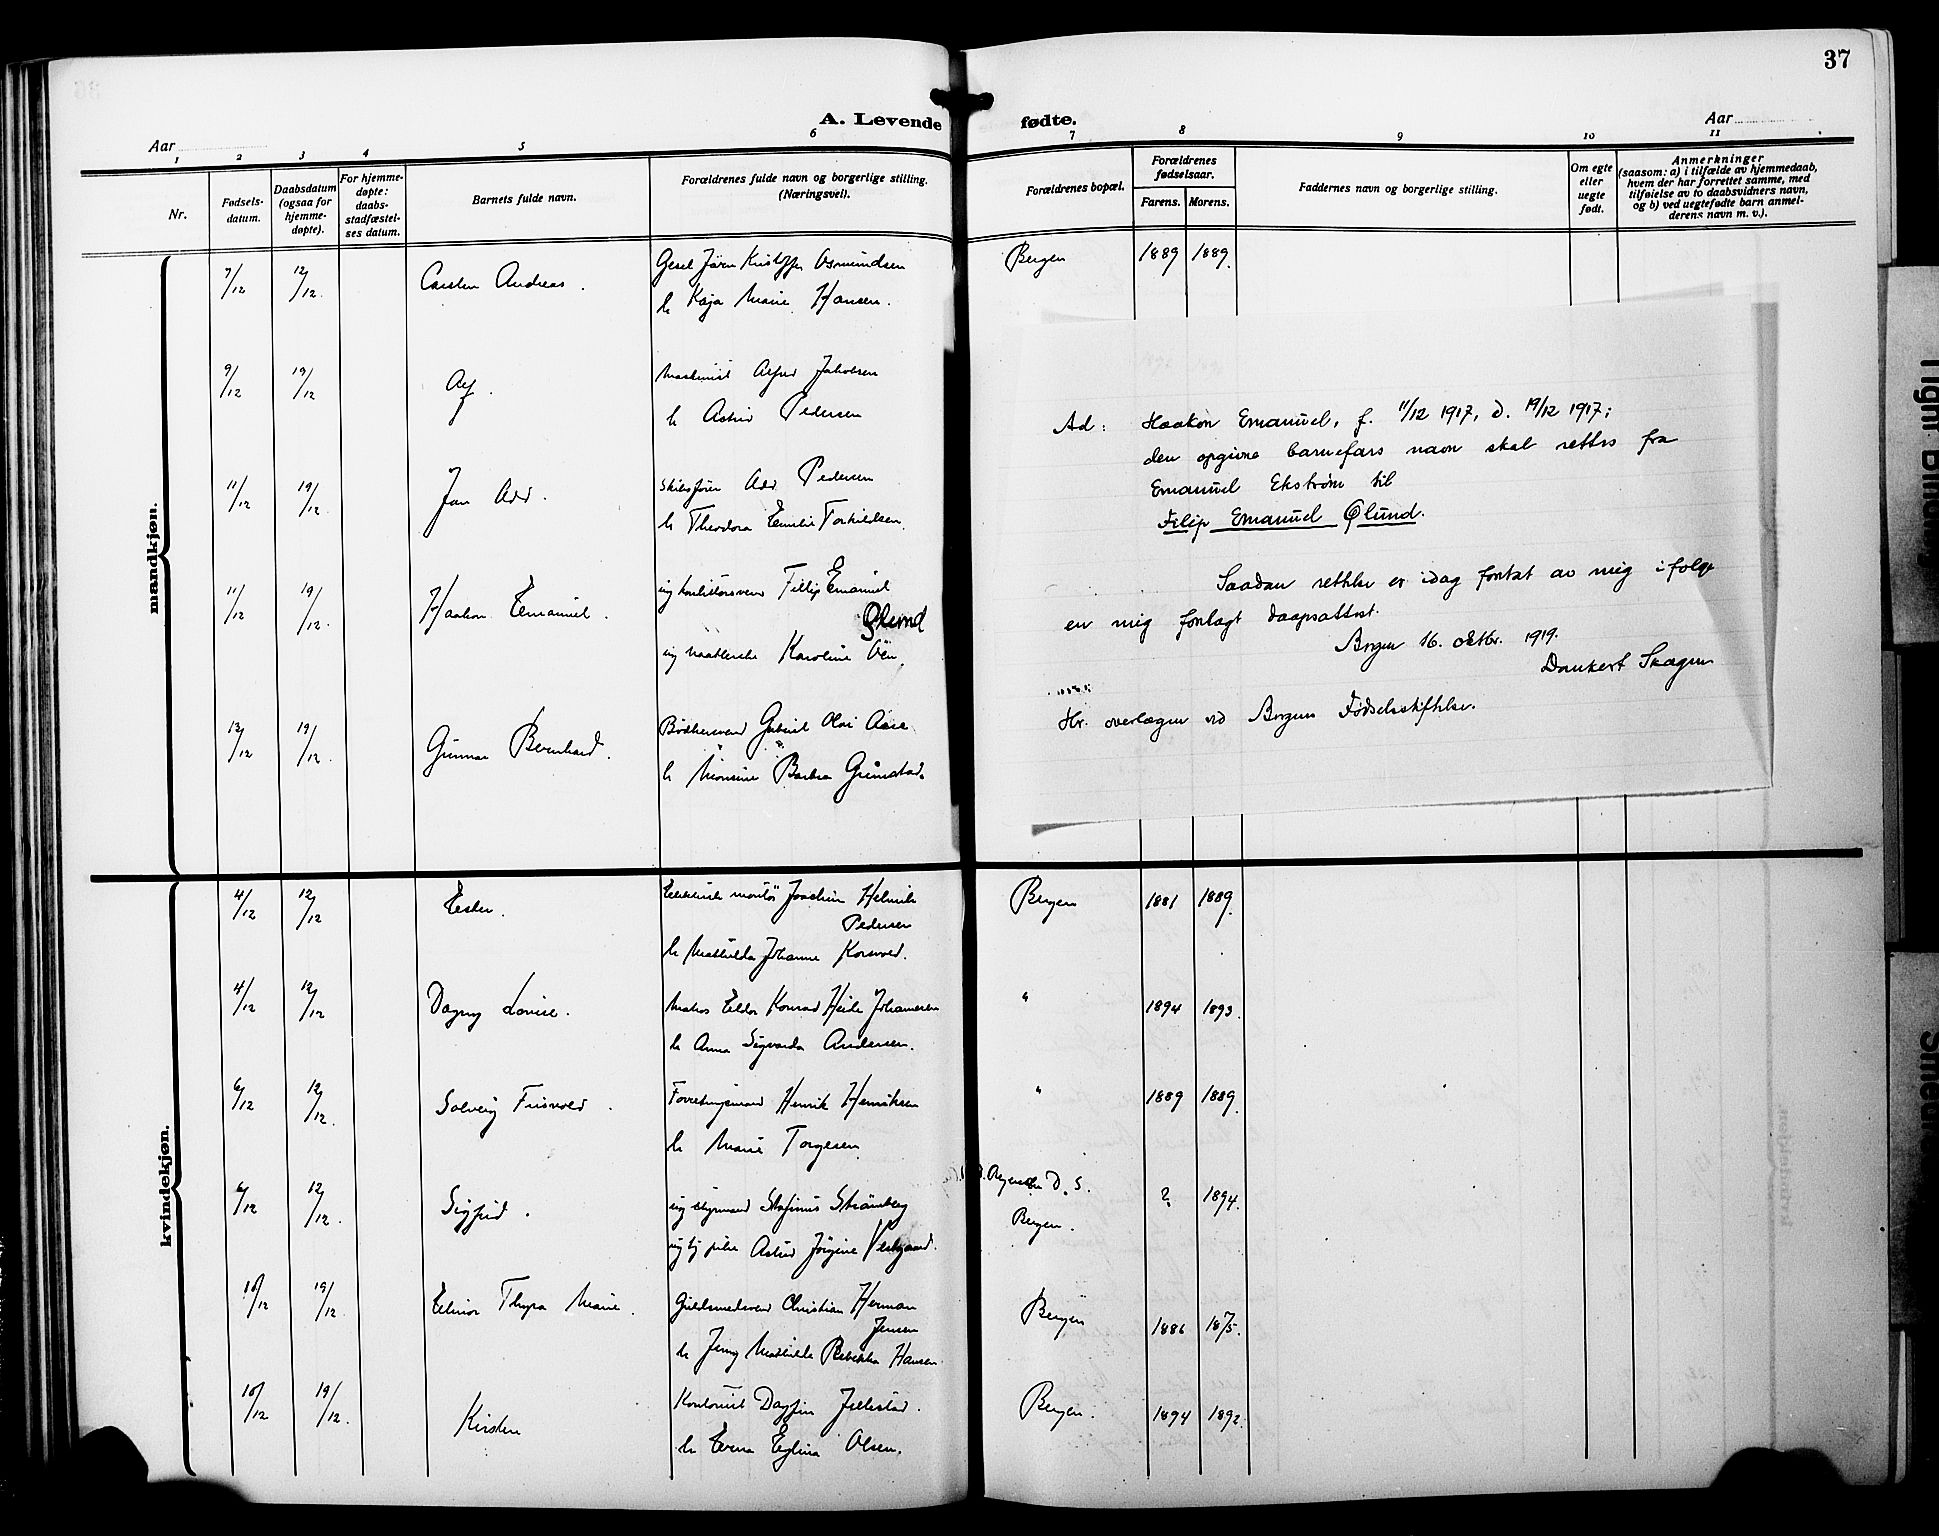 37
A. Levende fødte.
Aar
Aar
1 2 3 4 5 6 7 8 9 10 11
Nr.
Fødsels-
datum.
Daabsdatum
(ogsaa for
hjemme-
døpte).
For hjemme-
døpte:
daabs-
stadfæstel-
ses datum.
Barnets fulde navn.
Forældrenes fulde navn og borgerlige stilling.
(Næringsvei).
Forældrenes bopæl.
Forældrenes
fødselsaar.
Farens. Morens.
Faddernes navn og borgerlige stilling.
Om egte
eller
uegte
født.
Anmerkninger
(saasom: a) i tilfælde av hjemmedaab,
hvem der har forrettet samme, med
tilføielse av to daabsvidners navn,
og b) ved uegtefødte barn anmel-
derens navn m. v.).
mandkjøn.
7/12 12/12. Carsten Andreas. Jörn Kristoffer Osmundsen Bergen 1889 1889.
h Kaja Marie Hansen.
9/12 19/12 Alf. Maskinist Alfred Jakobsen
h Astrid Pedersen
11/12 19/12. Jan Adr. Skibsfører Adr. Pedersen
h Theodora Emilie Torkildsen.
11/12 19/12. Haakon Emanuel. ug Filip Emanuel
Ølund
ug Karoline Øen.
13/12 19/12. Gunnar Bernhard. Bødkersvend Gabriel Olai Aase
h Monsine Barbra Grimstad.
Ad: Haakon Emanuel, f. 11/12 1917, d. 19/12 1917;
den opgivne barnefars navn skal rettes fra
Emanuel Ekstrøm til
Filip Emanuel Ølund.
Saadan rettelse er idag foretat av mig ifølge
en mig forelagt daapsattest.
Bergen 16. oktbr. 1919.
Dankert Skagen
Hr. overlægen ved Bergens Fødselsstiftelse.
kvindekjøn.
4/12 12/12 Ester. montør Joachim Henrik Bergen 1881 1889.
Pedersen
h Mathilda Johanne Korsvold.
4/12 12/12 Dagny Lovise. Matros Eldor Konrad Heide Johannesen " 1894 1893.
h Anna Sigvarda Andersen.
6/12 12/12. Solveig Friisvold. Forretningsmand Henrik Henriksen " 1889 1889.
h Marie Torgesen
6/12 12/12. Sigfrid. ug styrmand Stafinus Strömberg D. S. ? 1894.
Bergen.
ug tj. pike Astrid Jørgine Vestgaard.
10/12 19/12. Elinor Thyra Marie. Guldsmedsvend Christian Herman Bergen 1886 1875.
Jensen
h Jenny Mathilde Rebekka Hansen
10/12 19/12. Kirsten Kontorist Dagfin Jellestad. Bergen. 1894 1892.
h Erna Eglina Olsen.
kvindekjøn.